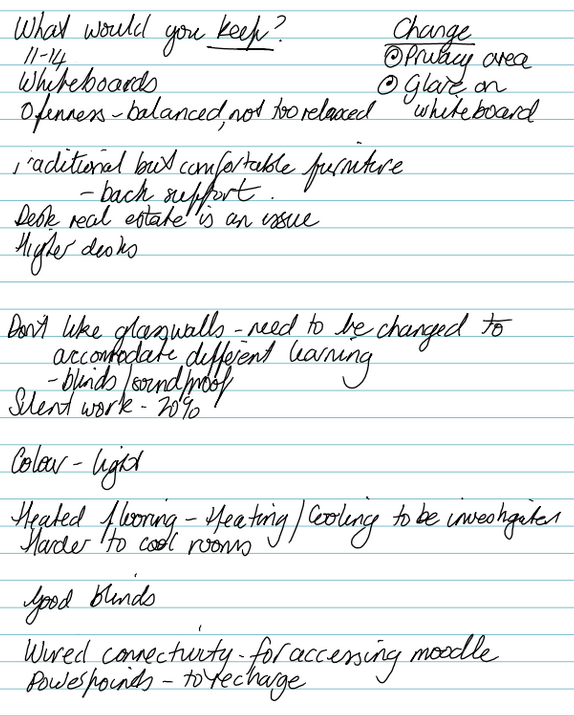 What would you keep?
11-14
Whiteboards
Openness - balanced, not too relaxed
Change
Privacy area
Glare on
whiteboard
Traditional but comfortable furniture
- back support.
Desk real estate is an issue
Higher desks
Don't like glasswalls - need to be changed to
accomodate different learning
- blinds / soundproof
Silent work - 20%
Colour - light
Heated flooring - Heating / Cooling to be investigated
Harder to cool rooms
Good blinds
Wired connectivity - for accessing moodle
Powerpoints - to recharge